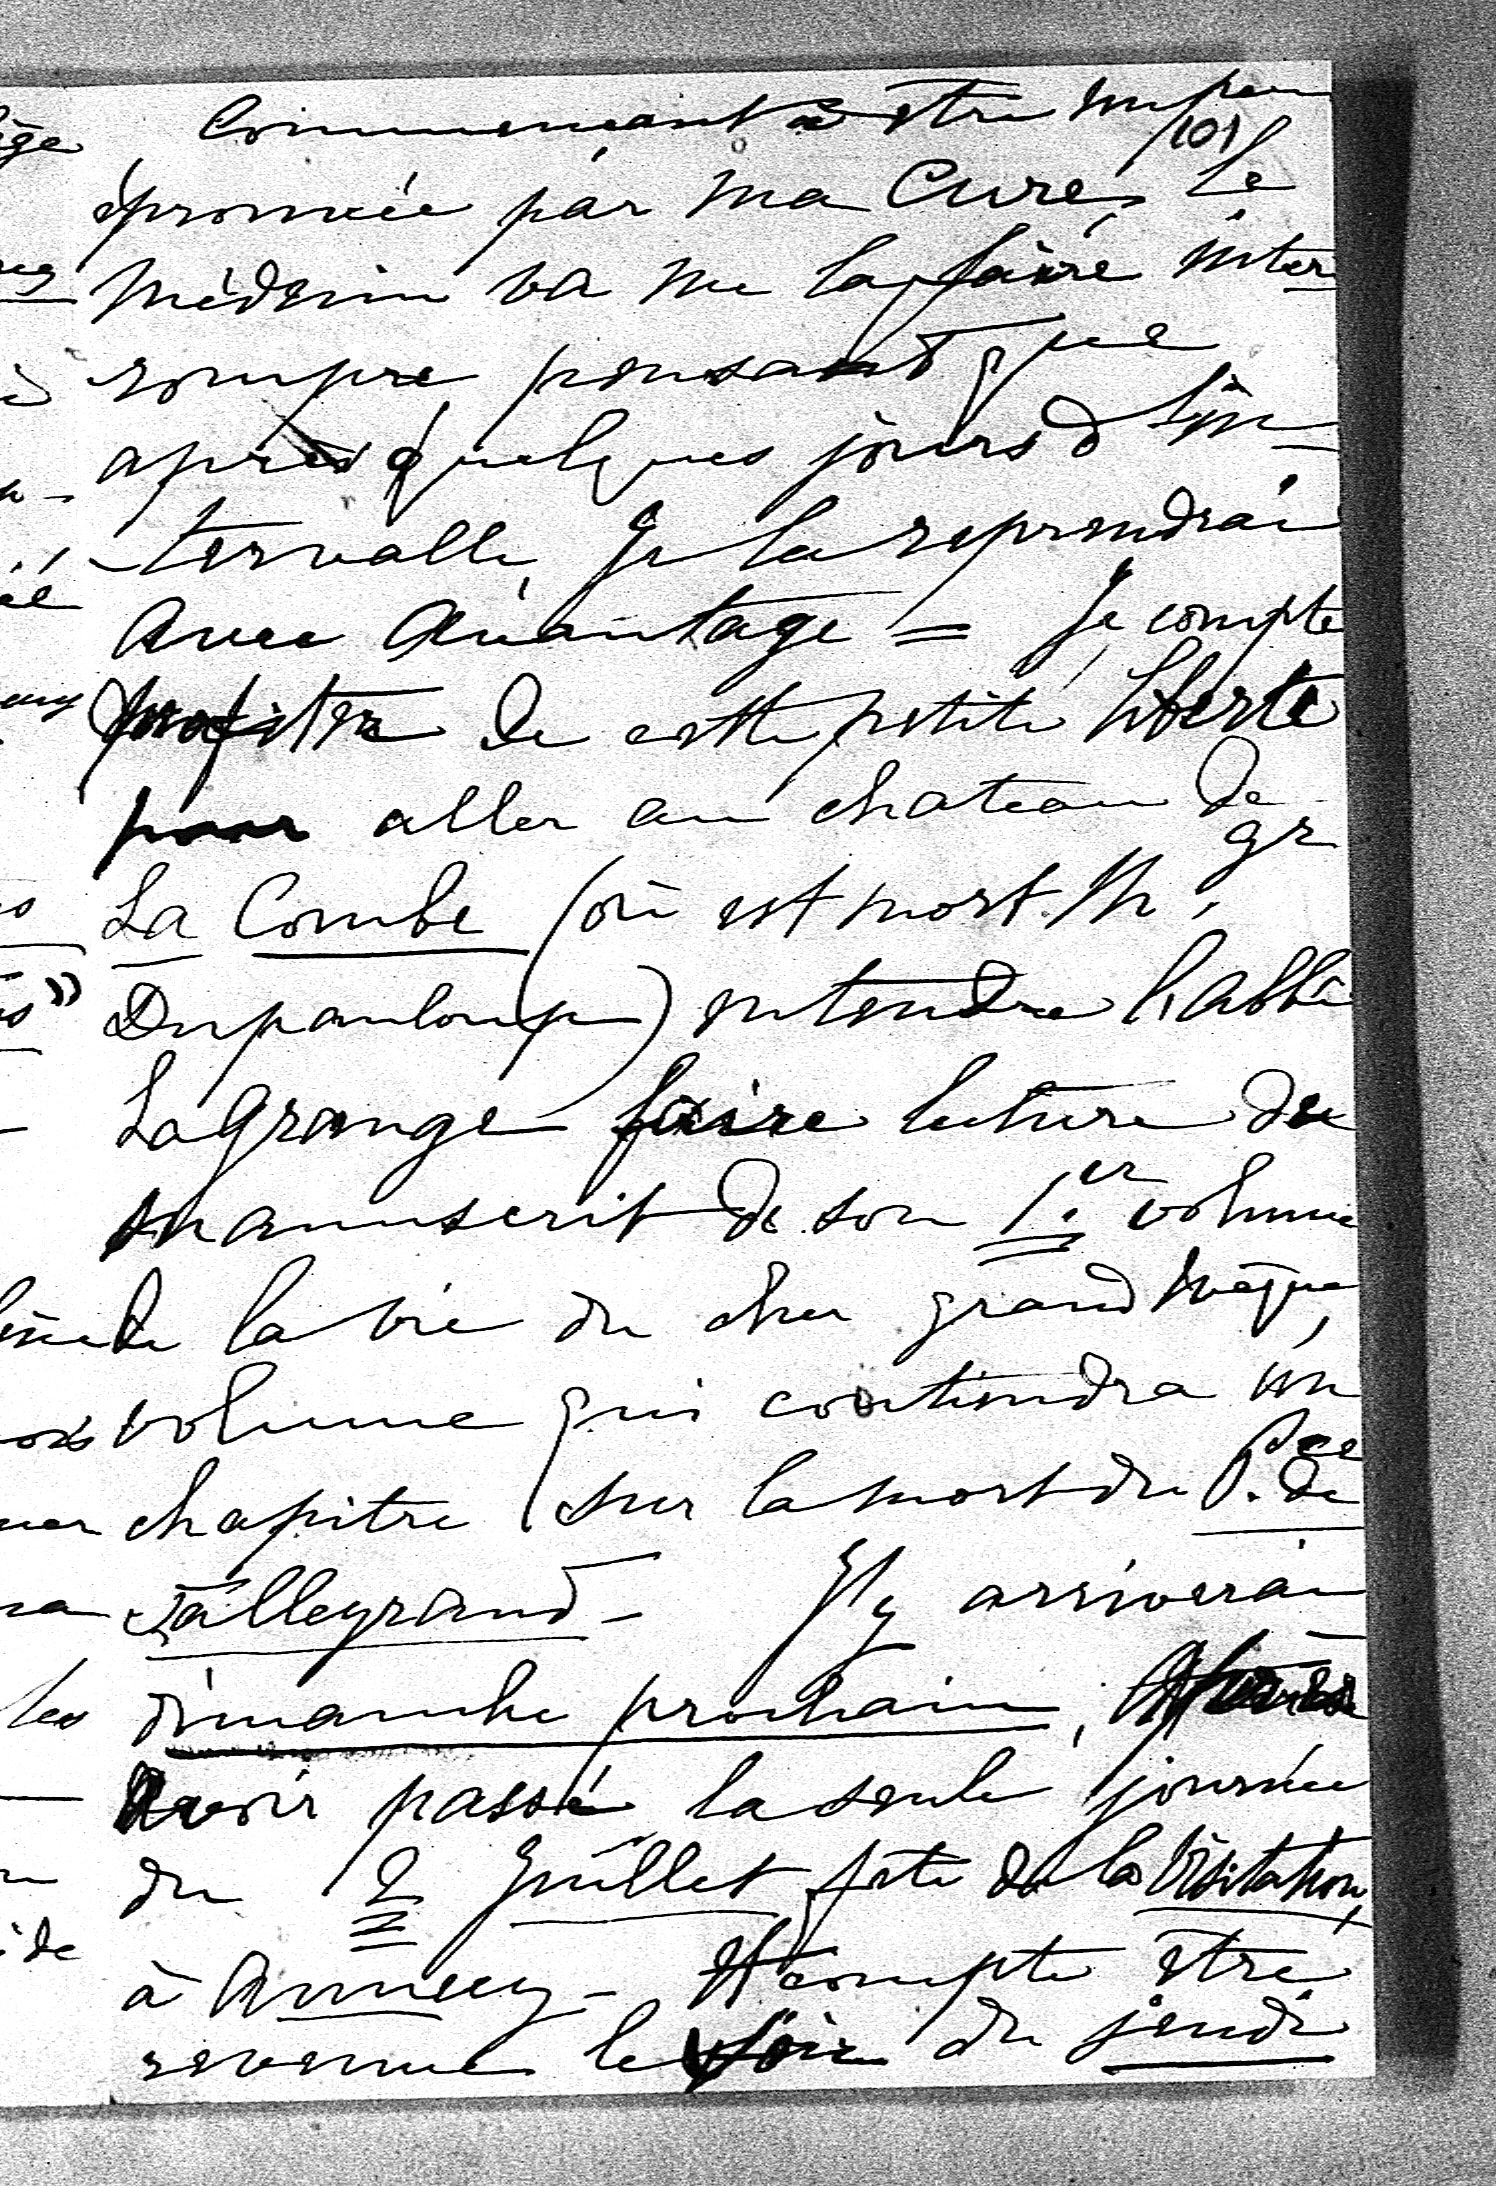 Commençant à être un peu
101
éprouvée par ma Cure, le
Médecin va me la faire inter
rompre, pensant que
après quelques jours d'in-
-tervalle, je la reprendrai
avec avantage = Je compte
profiter de cette petite liberté
pour aller au chateau de
La Combe (où est mort M.gr
Dupanloup) entendre l'abbé
Lagrange faire lecture du
manuscrit de son 1.er volume
de la vie du cher grand évêque,
volume qui contiendra un
chapitre sur la mort du P.ce de
Talleyrand - J'y arriverai
dimanche prochain, après
avoir passé la seule journée
du 2 Juillet fête de la Visitation,
à Annecy - et compte être
revenue le soir du jeudi